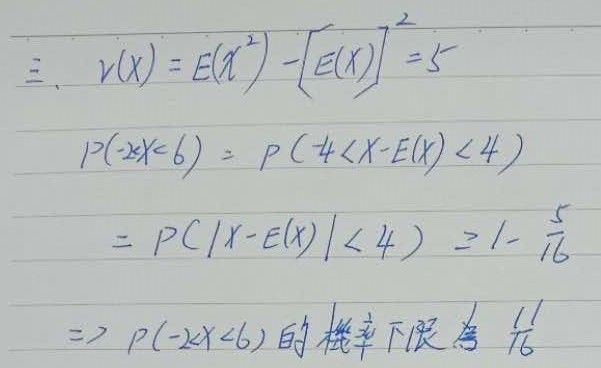 三、 V(X) = E(X²) - [E(X)]² = 5
P(-2<X<6) = P(-4<X-E(X)<4)
= P(|X-E(X)|<4) ≥ 1 - 5/16
=> P(-2<X<6) 的機率下限為 11/16